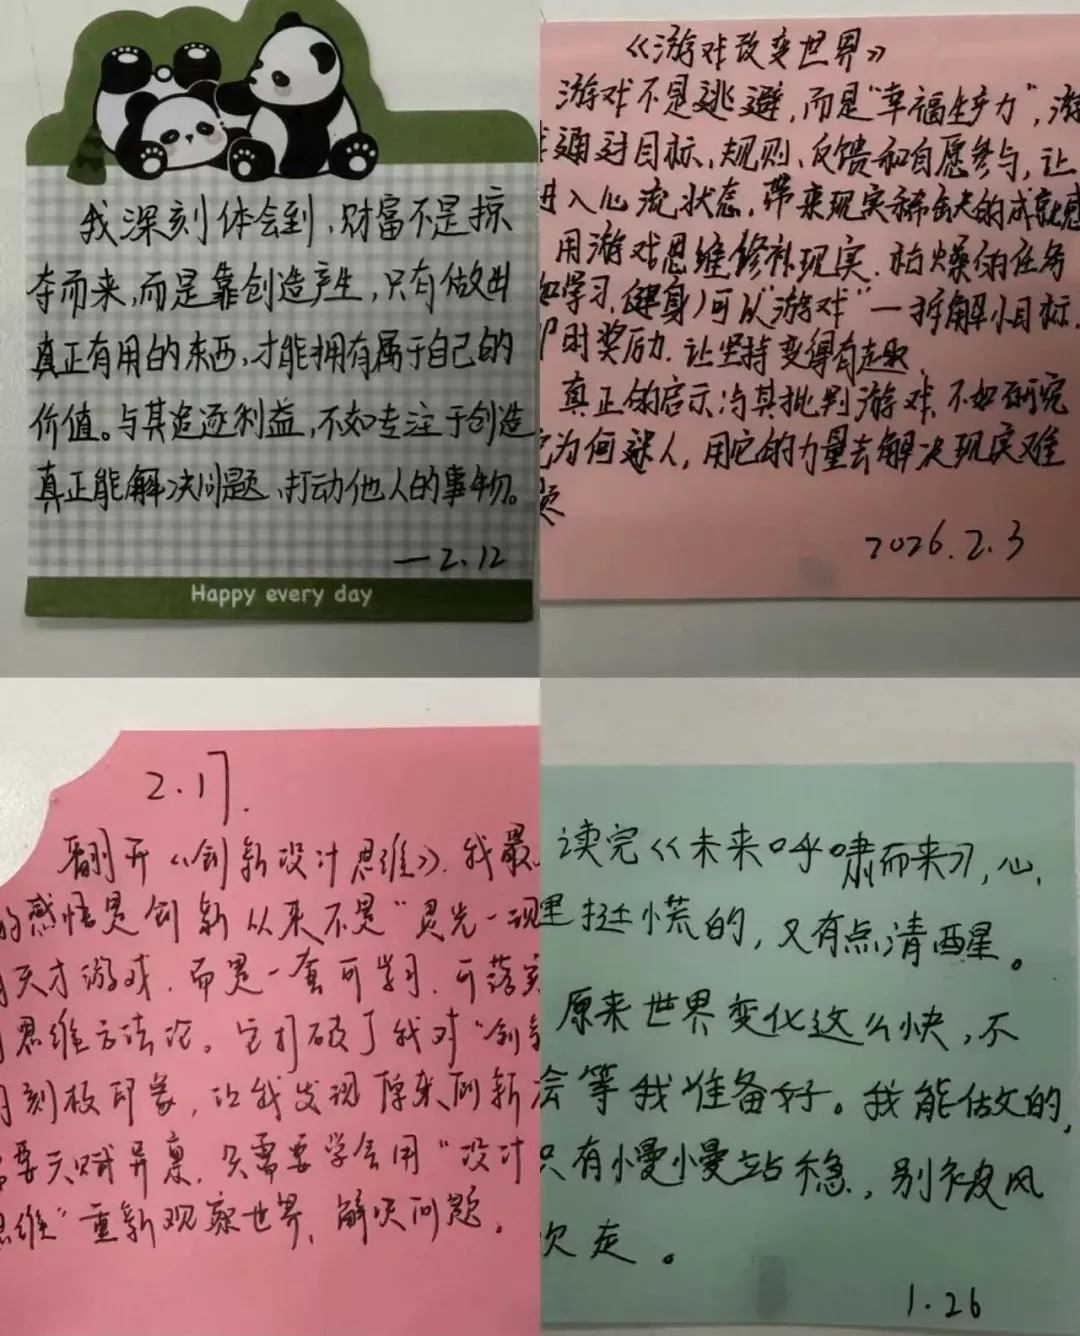 我深刻体会到，财富不是掠
夺而来，而是靠创造产生，只有做出
真正有用的东西，才能拥有属于自己的
价值。与其追逐利益，不如专注于创造
真正能解决问题、打动他人的事物。
—2.12
Happy every day
《游戏改变世界》
游戏不是逃避，而是“幸福生产力”，游
通过目标、规则、反馈和自愿参与，让
进入心流状态，带来现实稀缺的成就感
用游戏思维修补现实，枯燥的任务
如学习，健身）可以“游戏”一拆解小目标，
即时奖励，让坚持变得有趣
真正的启示：与其批判游戏，不如研究
它为何迷人，用它的力量去解决现实难
题
2026.2.3
2.17.
翻开《创新设计思维》，我最
的感悟是创新从来不是“灵光一现
天才游戏，而是一套可学习、可落实
思维方法论。它打破了我对“创新
刻板印象，让我发现原来创新
需要天赋异禀，只需要学会用“设计
思维”重新观察世界，解决问题。
读完《未来呼啸而来》，心
里挺慌的，又有点清醒。
原来世界变化这么快，不
会等我准备好。我能做的，
只有慢慢站稳，别被风
吹走。
1.26